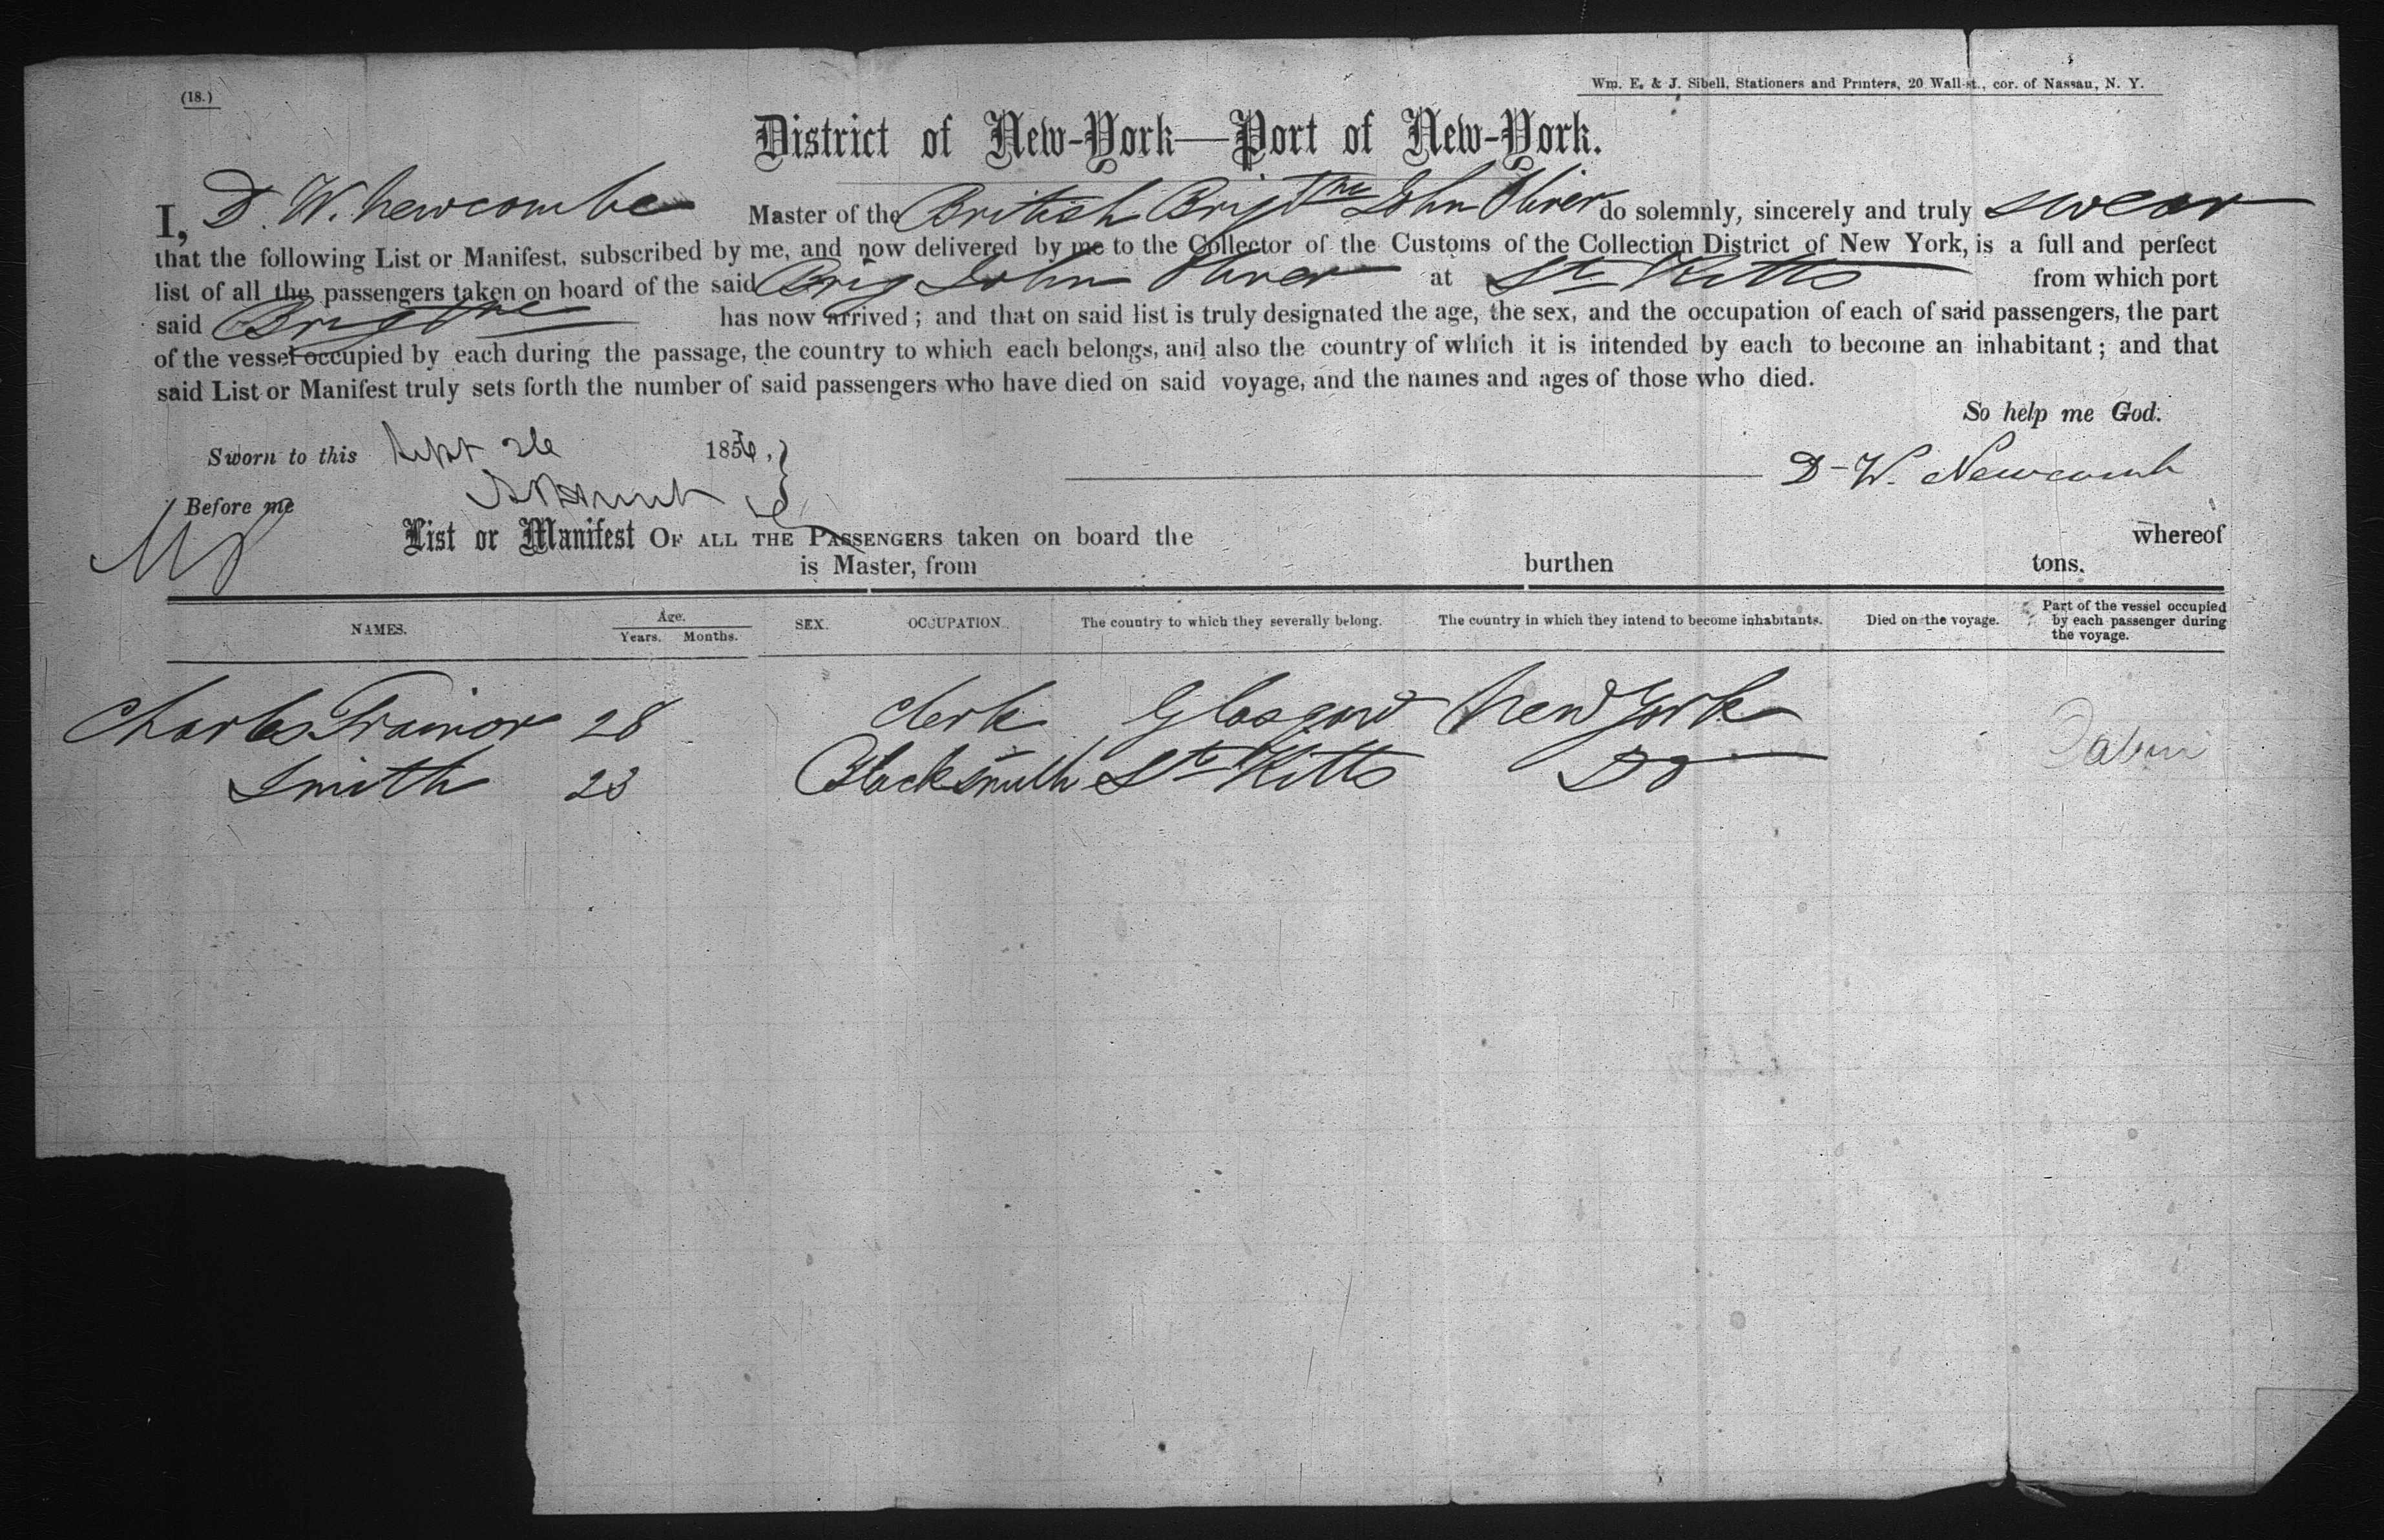 (18.)
Wm. E. & J. Sibell, Stationers and Printers, 20 Wall-st., cor. of Nassau, N. Y.
District of New-York—Port of New-York.
I, D. W. Newcombe Master of the British Brigtne John Oliver do solemnly, sincerely and truly swear
that the following List or Manifest, subscribed by me, and now delivered by me to the Collector of the Customs of the Collection District of New York, is a full and perfect
list of all the passengers taken on board of the said Brig John Oliver at St. Kitts from which port
said Brigtne has now arrived; and that on said list is truly designated the age, the sex, and the occupation of each of said passengers, the part
of the vessel occupied by each during the passage, the country to which each belongs, and also the country of which it is intended by each to become an inhabitant; and that
said List or Manifest truly sets forth the number of said passengers who have died on said voyage, and the names and ages of those who died.
So help me God.
Sworn to this Sept 26 1856,
D-W. Newcomb
Before me
List or Manifest OF ALL THE PASSENGERS taken on board the whereof
is Master, from burthen tons.
NAMES. Age. Years. Months. SEX. OCCUPATION. The country to which they severally belong. The country in which they intend to become inhabitants. Died on the voyage. Part of the vessel occupied by each passenger during the voyage.
Charles Trainor 28 Clerk Glasgow New York
Smith 23 Blacksmith St. Kitts Do